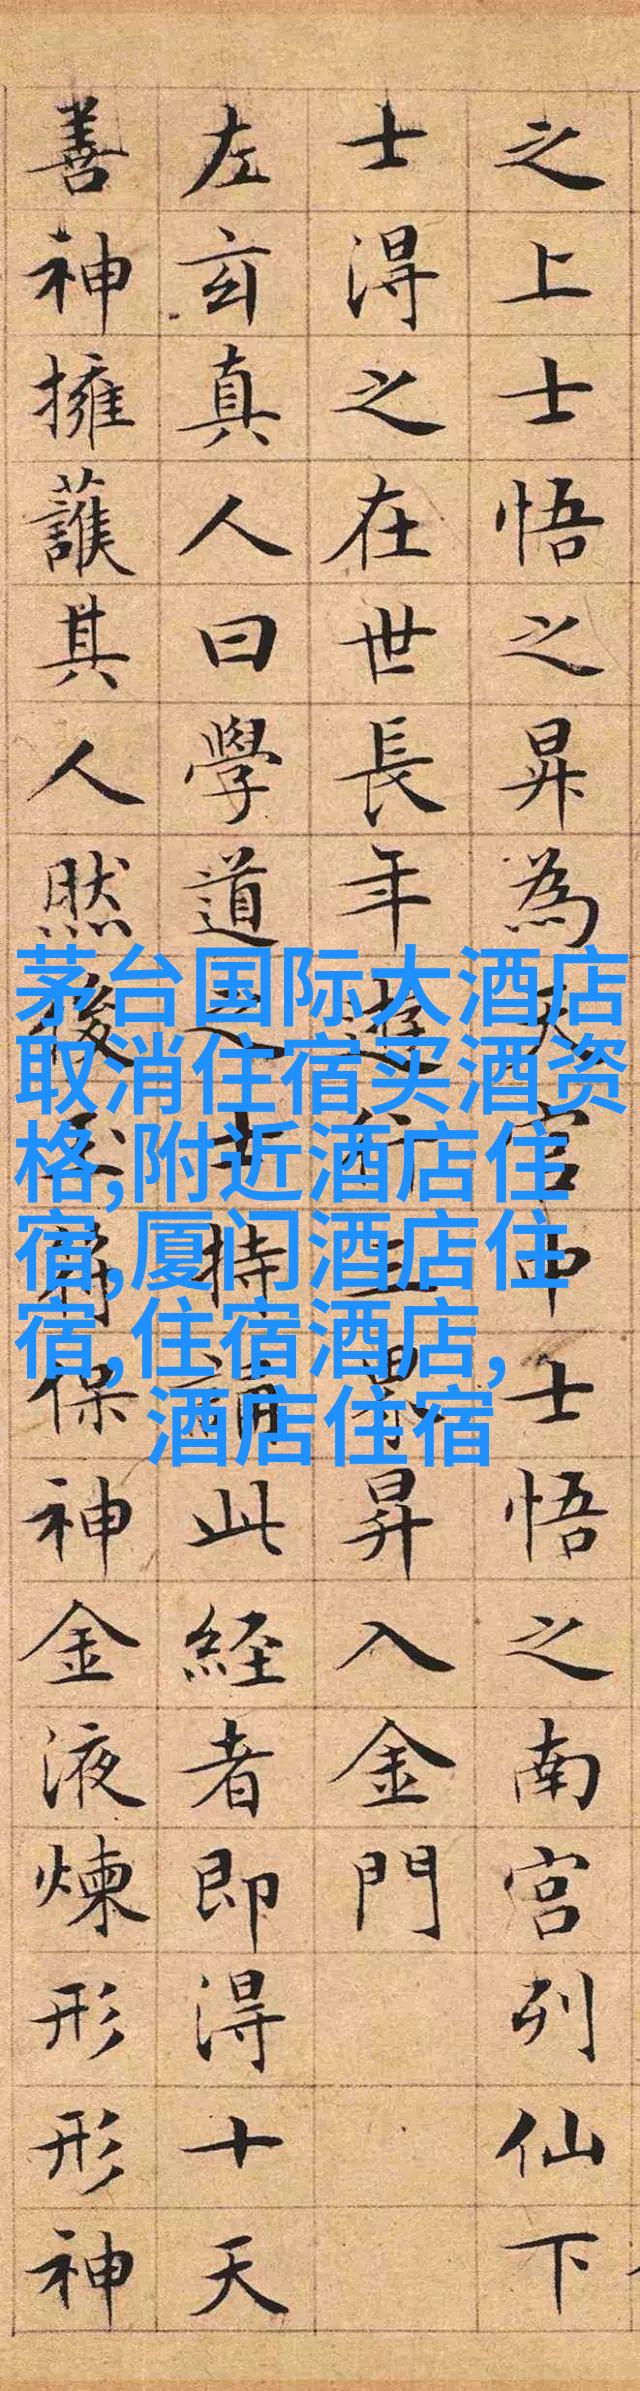 之上士悟之昇為天官中士悟之南宮列仙下
士得之在世長年遊行三界昇入金門
左玄真人曰學道之士持誦此經者即得十天
善神擁護其人然後玉符保神金液煉形形神
茅台国际大酒店
取消住宿买酒资
格,附近酒店住
宿,厦门酒店住
宿,住宿酒店,
酒店住宿